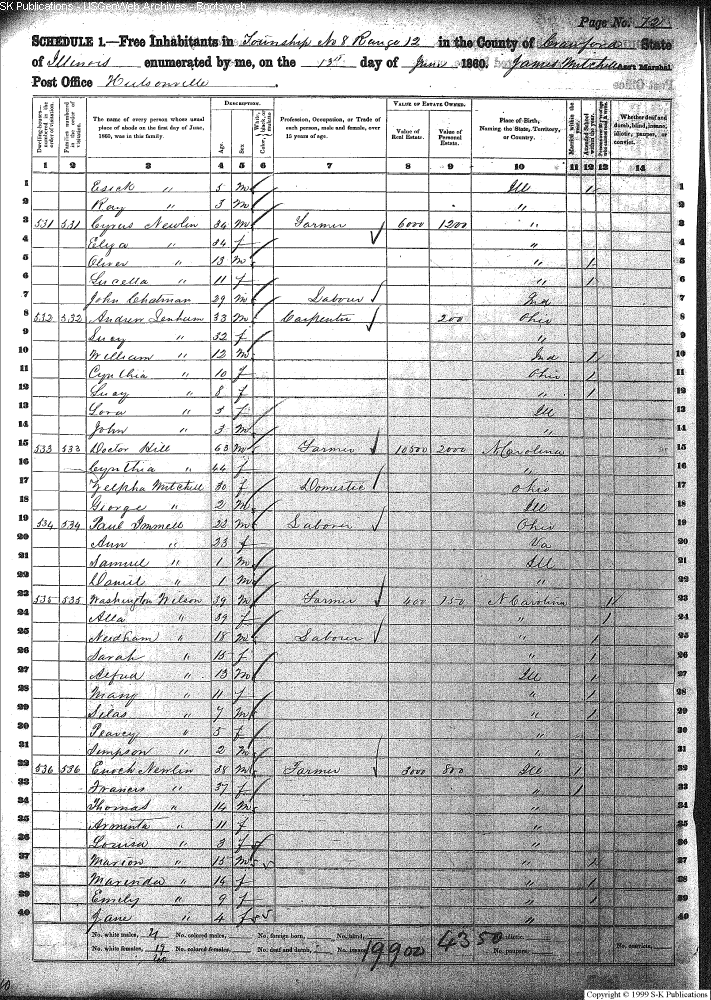 SK Publications - USGenWeb Archives - Rootsweb
Page No. 72
SCHEDULE 1.—Free Inhabitants in Township No 8 Range 12 in the County of Crawford State
of Illinois enumerated by me, on the 13th day of June 1860. James Mitchell Ass't Marshal
Post Office Hutsonville
Dwelling-houses—numbered in the order of visitation. Families numbered in the order of visitation. The name of every person whose usual place of abode on the first day of June, 1860, was in this family. DESCRIPTION. Age. Sex. Color, White, black, or mulatto. Profession, Occupation, or Trade of each person, male and female, over 15 years of age. VALUE OF ESTATE OWNED. Value of Real Estate. Value of Personal Estate. Place of Birth, Naming the State, Territory, or Country. Married within the year. Attended School within the year. Whether deaf and dumb, blind, insane, idiotic, pauper, or convict.
1 2 3 4 5 6 7 8 9 10 11 12 13 14
1 Esick " 5 m Ill 1 1
2 Ray " 3 m " 2
3 531 531 Cyrus Newlin 34 m Farmer 6000 1200 " 3
4 Eliza " 34 f " 4
5 Oliver " 13 m " 1 5
6 Lucella " 11 f " 1 6
7 John Chatman 29 m Labour Ind 7
8 532 532 Andrew Lenhum 33 m Carpenter 200 Ohio 8
9 Lucy " 32 f " 9
10 William " 12 m Ind 1 10
11 Cynthia " 10 f Ohio 1 11
12 Lucy " 8 f " 1 12
13 Lora " 5 f Ill 13
14 John " 3 m " 14
15 533 533 Doctor Hill 63 m Farmer 10500 2000 N Carolina 15
16 Cynthia " 44 f " 16
17 Zelpha Mitchell 30 f Domestic Ohio 17
18 George " 2 m Ill 18
19 534 534 Paul Immell 22 m Laborer Ohio 19
20 Ann " 23 f Va 20
21 Samuel " 1 m Ill 21
22 Daniel " 1 m " 22
23 535 535 Washington Wilson 39 m Farmer 400 150 N Carolina 1 23
24 Alla " 39 f " 1 24
25 Needham " 18 m Laborer " 1 25
26 Sarah " 15 f " 1 26
27 Alfred " 13 m Ill 1 27
28 Mary " 11 f " 1 28
29 Silas " 7 m " 1 29
30 Pearcy " 5 f " 30
31 Simpson " 2 m " 31
32 536 536 Enoch Newlin 38 m Farmer 3000 800 Ill 1 32
33 Francis " 37 f " 1 33
34 Thomas " 14 m " 34
35 Armenta " 11 f " 35
36 Louisa " 3 f " 36
37 Marion " 15 m " 1 37
38 Marinda " 14 f " 1 38
39 Emily " 9 f " 1 39
40 Jane " 4 f " 40
No. white males, 21 No. colored males, No. foreign born, No. blind, 19900 4350 No. idiotic,
No. white females, 19 No. colored females, No. deaf and dumb, No. insane, No. paupers, No. convicts,
Copyright © 1999 S-K Publications